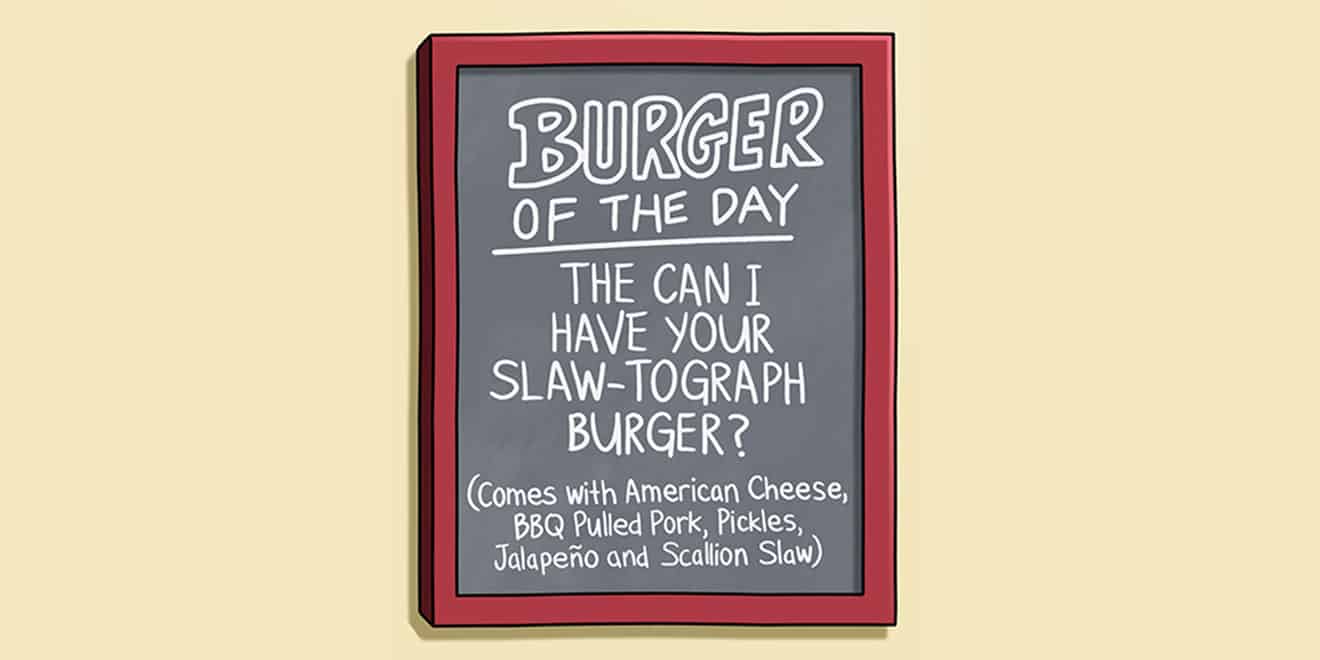 BURGER
OF THE DAY
THE CAN I
HAVE YOUR
SLAW-TOGRAPH
BURGER?
(Comes with American Cheese,
BBQ Pulled Pork, Pickles,
Jalapeño and Scallion Slaw)